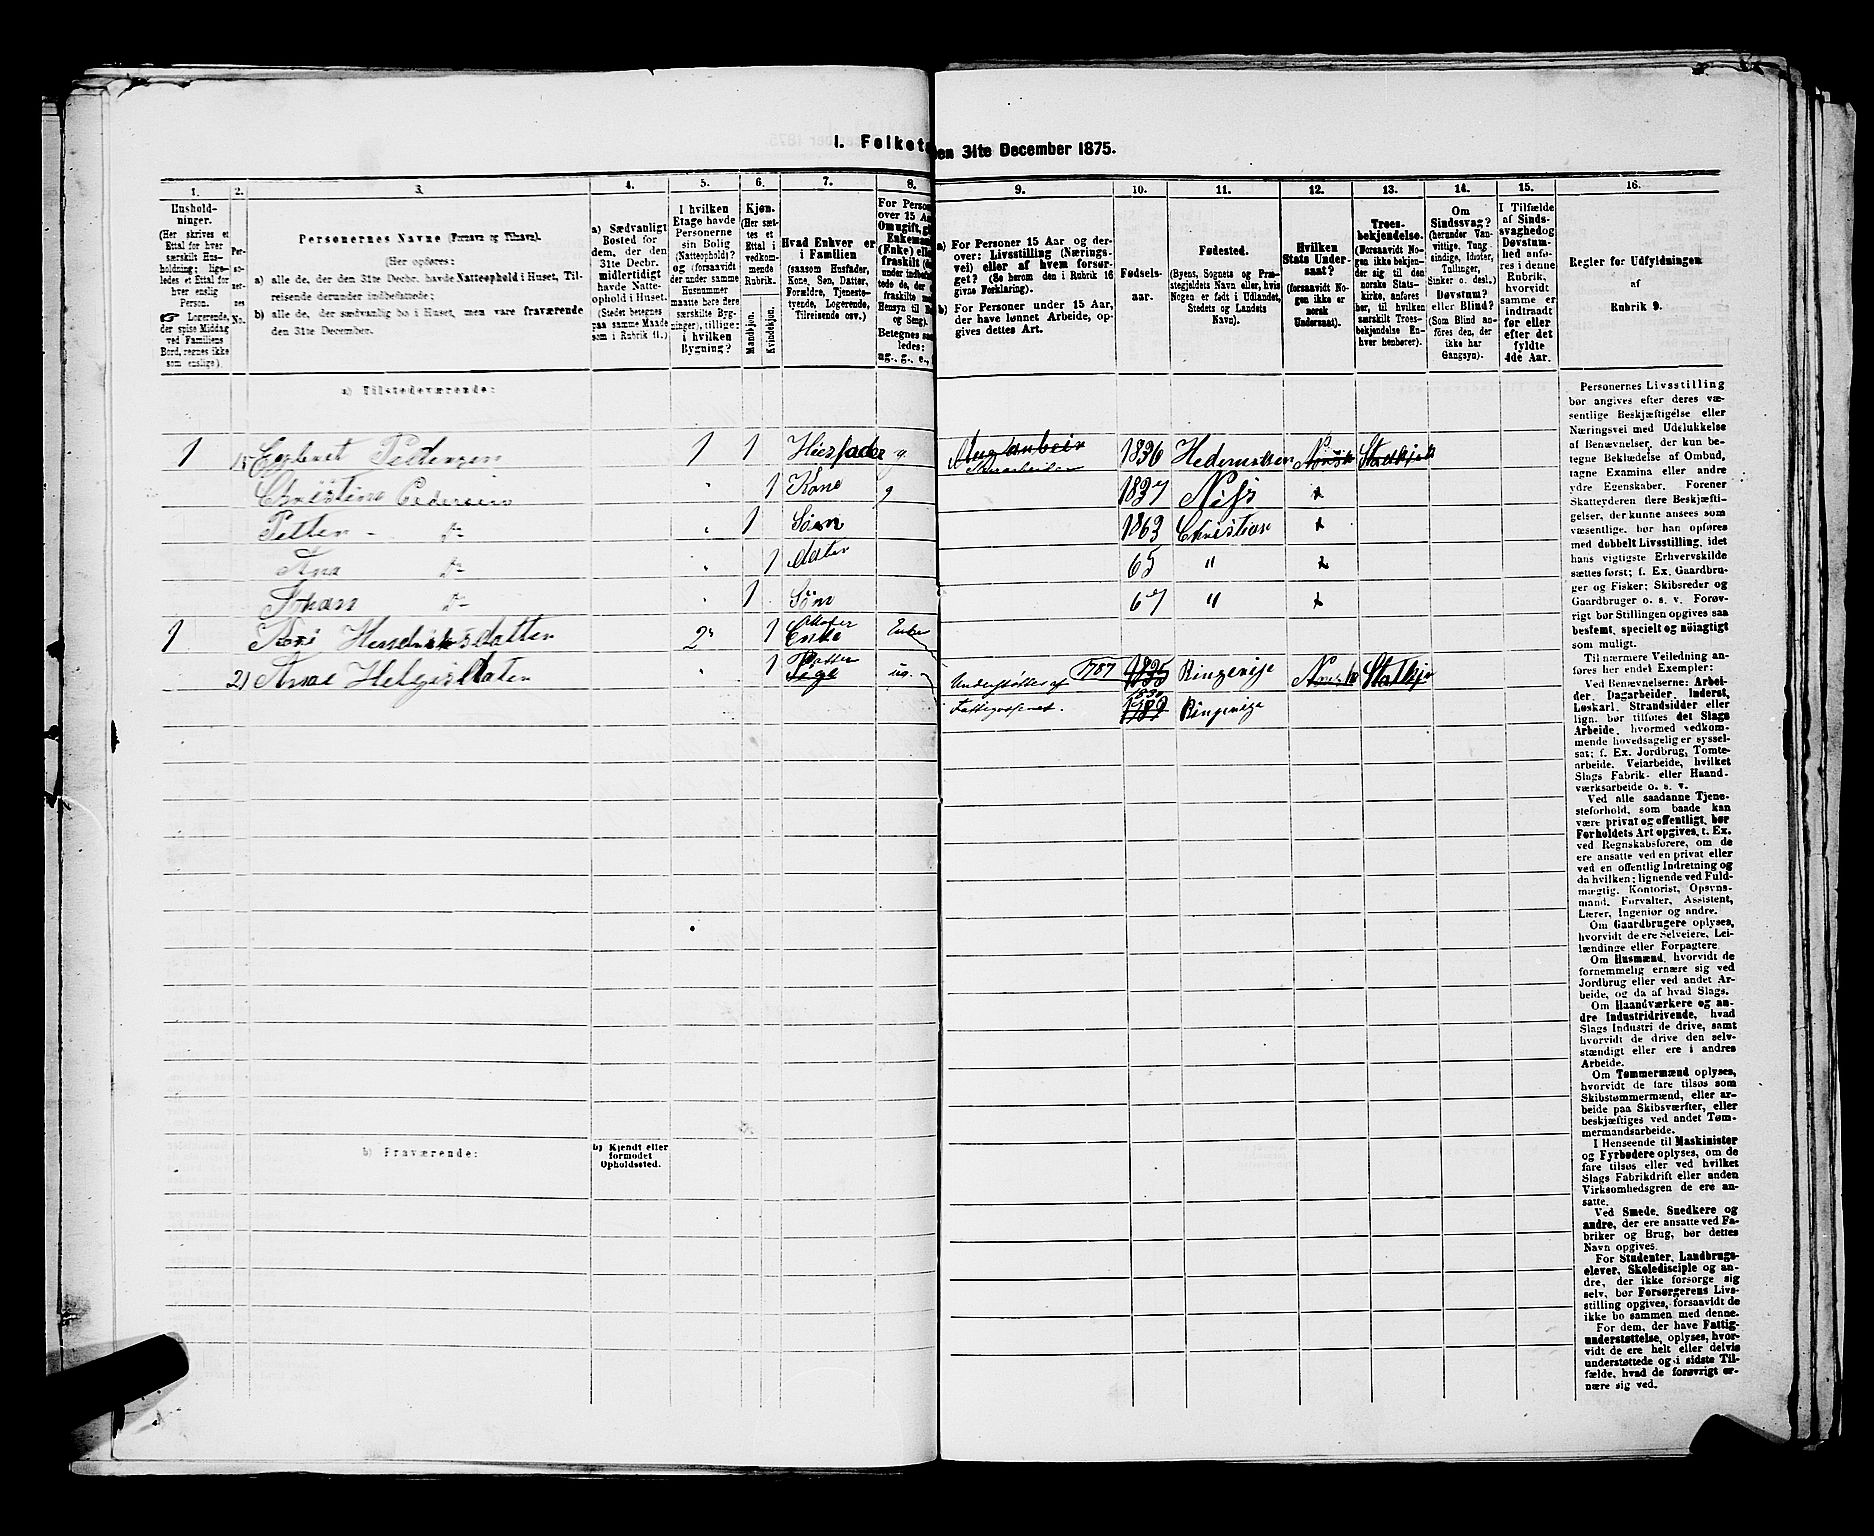 I. Folket
en 31te December 1875.
1.
2.
3.
4.
5.
6.
7.
8.
9.
10.
11.
12.
13.
14.
15.
16.
Hushold-
ninger.
(Her skrives et
Ettal for hver
særskilt Hus-
holdning; lige-
ledes et Ettal for
hver enslig
Person.
☞ Logerende,
der spise Middag
ved Familiens
Bord, regnes ikke
som enslige).
Per-
so-
ner-
nes
No.
Personernes Navne (Fornavn og Tilnavn).
(Her opføres:
a) alle de, der den 31te Decbr. havde Natteophold i Huset, Til-
reisende derunder indbefattede;
b) alle de, der sædvanlig bo i Huset, men vare fraværende
den 31te December.
a) Sædvanligt
Bosted for
dem, der den
31te Decbr.
midlertidigt
havde Natte-
ophold i Huset.
(Stedet betegnes
paa samme Maade
som i Rubrik 11.)
I hvilken
Etage havde
Personerne
sin Bolig
(Natteophold)?
og (forsaavidt
der under samme
Husnummer
maatte høre flere
særskilte Byg-
ninger), tillige:
i hvilken
Bygning?
Kjøn.
(Her sæt-
tes et
Ettal i
vedkom-
mende
Rubrik.
Mandkjøn.
Kvindekjøn.
Hvad Enhver er
i Familien
(saasom Husfader,
Kone, Søn, Datter,
Forældre, Tjeneste-
tyende, Logerende,
Tilreisende osv.)
For Person
over 15 Aar
Omugift, gi
Enkemand
(Enke) elle
fraskilt (
under indbefat-
tede de, der
fraskilte m
Hensyn til B
og Seng).
Betegnes saa
ledes:
ug., g., e.,
a) For Personer 15 Aar og der-
over: Livsstilling (Nærings-
vei) eller af hvem forsør-
get? (Se herom den i Rubrik 16
givne Forklaring).
b) For Personer under 15 Aar,
der have lønnet Arbeide, op-
gives dettes Art.
Fødsels-
aar.
Fødested.
(Byens, Sognets og Præ-
stegjeldets Navn eller, hvis
Nogen er født i Udlandet,
Stedets og Landets
Navn).
Hvilken
Stats Under-
saat?
(forsaavidt No-
gen ikke er
norsk
Undersaat).
Troes-
bekjendelse.
(Forsaavidt No-
gen ikke bekjen-
der sig til den
norske Stats-
kirke, anføres
her, til hvilken
særskilt Troes-
bekjendelse En-
hver henhører).
Om
Sindssvag?
(herunder Van-
vittige, Tung-
sindige, Idioter,
Tullinger,
Sinker o. desl.)
Døvstum?
eller Blind?
(Som Blind an-
føres den, der
ikke har
Gangsyn).
I Tilfælde
af Sinds-
svaghed og
Døvstum-
hed anfø-
res i denne
Rubrik,
hvorvidt
samme er
indtraadt
før eller
efter det
fyldte
4de Aar.
Regler for Udfyldningen
af
Rubrik 9.
a) Tilstedeværende:
1 Pedersen 1 1 Husfader g. 1836 Hedemarken Norsk Statskirk
Christine Pedersen " 1 Kone g 1837
Petter - do " 1 Søn 1863 Christian
Ana do " 1 datter 65 "
Johan do " 1 Søn 67 "
1 Hendriksdatter 2 1 Enke Enke
2) Anne Helgesdaten " 1 Datter Pige ug. Understøttes af 1787 1835 Ringerige Norsk
Fattigvesenet. 1789 Ringerige
b) Fraværende:
b) Kjendt eller
formodet
Opholdssted.
Personernes Livsstilling
bør angives efter deres væ-
sentlige Beskjæftigelse eller
Næringsvei med Udelukkelse
af Benævnelser, der kun be-
tegne Beklædelse af Ombud,
tagne Examina eller andre
ydre Egenskaber. Forener
Skatteyderen flere Beskjæfti-
gelser, der kunne ansees som
væsentlige, bør han opføres
med dobbelt Livsstilling, idet
hans vigtigste Erhvervskilde
sættes først; f. Ex. Gaardbru-
ger og Fisker; Skibsreder og
Gaardbruger o. s. v. Forøv-
rigt bør Stillingen opgives saa
bestemt, specielt og nøiagtigt
som muligt.
Til nærmere Veiledning an-
føres her endel Exempler:
Ved Benævnelserne: Arbei-
der, Dagarbeider, Inderst,
Løskarl, Strandsidder eller
lign. bør tilføres det Slags
Arbeide, hvormed vedkom-
mende hovedsagelig er syssel-
sat; f. Ex. Jordbrug, Tomte-
arbeide, Veiarbeide, hvilket
Slags Fabrik- eller Haand-
værksarbeide o. s. v.
Ved alle saadanne Tjene-
steforhold, som baade kan
være privat og offentligt, bør
Forholdets Art opgives, t. Ex.
ved Regnskabsførere, om de
ere ansatte ved en privat eller
ved en offentlig Indretning og
da hvilken; lignende ved Fuld-
mægtig, Kontorist, Opsyns-
mand, Forvalter, Assistent,
Lærer, Ingeniør og andre.
Om Gaardbrugere oplyses,
hvorvidt de ere Selveiere, Lei-
lændinge eller Forpagtere.
Om Husmænd, hvorvidt de
fornemmelig ernære sig ved
Jordbrug eller ved andet Ar-
beide, og da af hvad Slags.
Om Haandværkere og an-
dre Industridrivende, hvad
Slags Industri de drive, samt
hvorvidt de drive den selv-
stændigt eller ere i andres
Arbeide.
Om Tømmermænd oplyses,
hvorvidt de fare tilsøs som
Skibstømmermænd, eller ar-
beide paa Skibsværfter, eller
beskjæftiges ved andet Tøm-
mermandsarbeide.
I Henseende til Maskinister
og Fyrbødere oplyses, om de
fare tilsøs eller ved hvilket
Slags Fabrikdrift eller anden
Virksomhedsgren de ere an-
satte.
Ved Smede, Snedkere og
andre, der ere ansatte ved Fa-
briker og Brug, bør dettes
Navn opgives.
For Studenter, Landbrugs-
elever, Skoledisciple og an-
dre, der ikke forsørge sig
selv, bør Forsørgerens Livs-
stilling opgives, forsaavidt de
ikke bo sammen med denne.
For dem, der have Fattig-
understøttelse, oplyses, hvor-
vidt de ere helt eller delvis
understøttede og i sidste Til-
fælde, hvad de forøvrigt er-
nære sig ved.